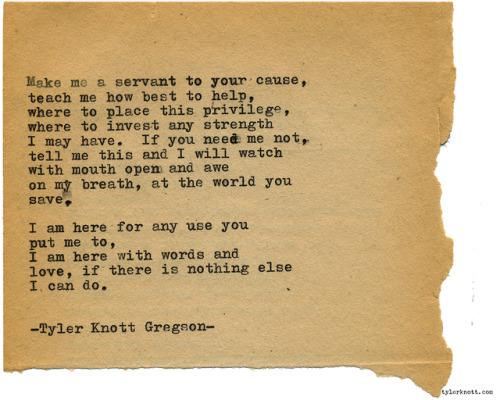 Make me a servant to your cause,
teach me how best to help,
where to place this privilege,
where to invest any strength
I may have.  If you need me not,
tell me this and I will watch
with mouth open and awe
on my breath, at the world you
save.
I am here for any use you
put me to,
I am here with words and
love, if there is nothing else
I can do.
-Tyler Knott Gregson-
tylerknott.com